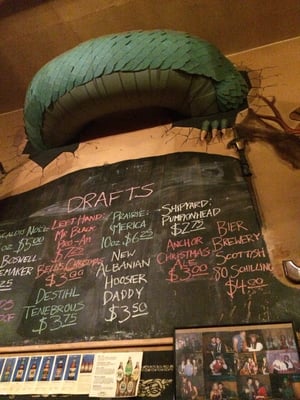 DRAFTS
NOEL
OZ $5.00
BOSWELL
EMAKER
LEFT HAND:
MC BLACK
BELLS CHRISTMAS
$3.00
DESTIHL
TENEBROUS
$3.75
PRAIRIE:
'MERICA
10OZ $6.25
NEW
ALBANIAN
HOOSIER
DADDY
$3.50
SHIPYARD:
PUMPKINHEAD
$2.75
ANCHOR
CHRISTMAS
ALE
$3.00
BIER
BREWERY
SCOTTISH
80 SCHILLING
$4.00